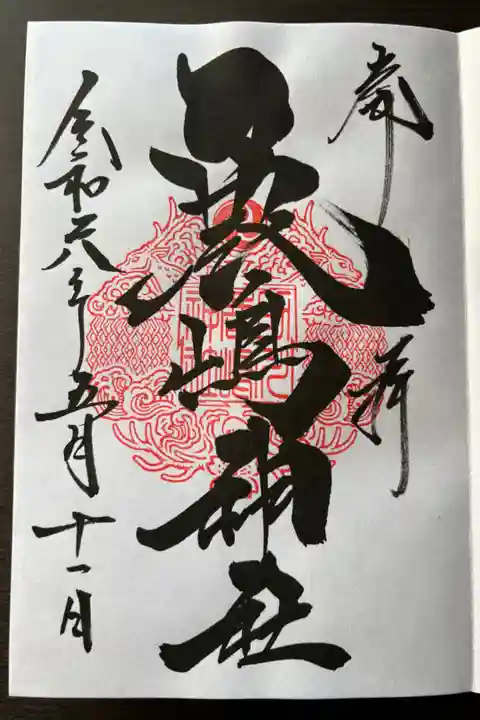 奉拝
嶋神社
令和六年五月十一日